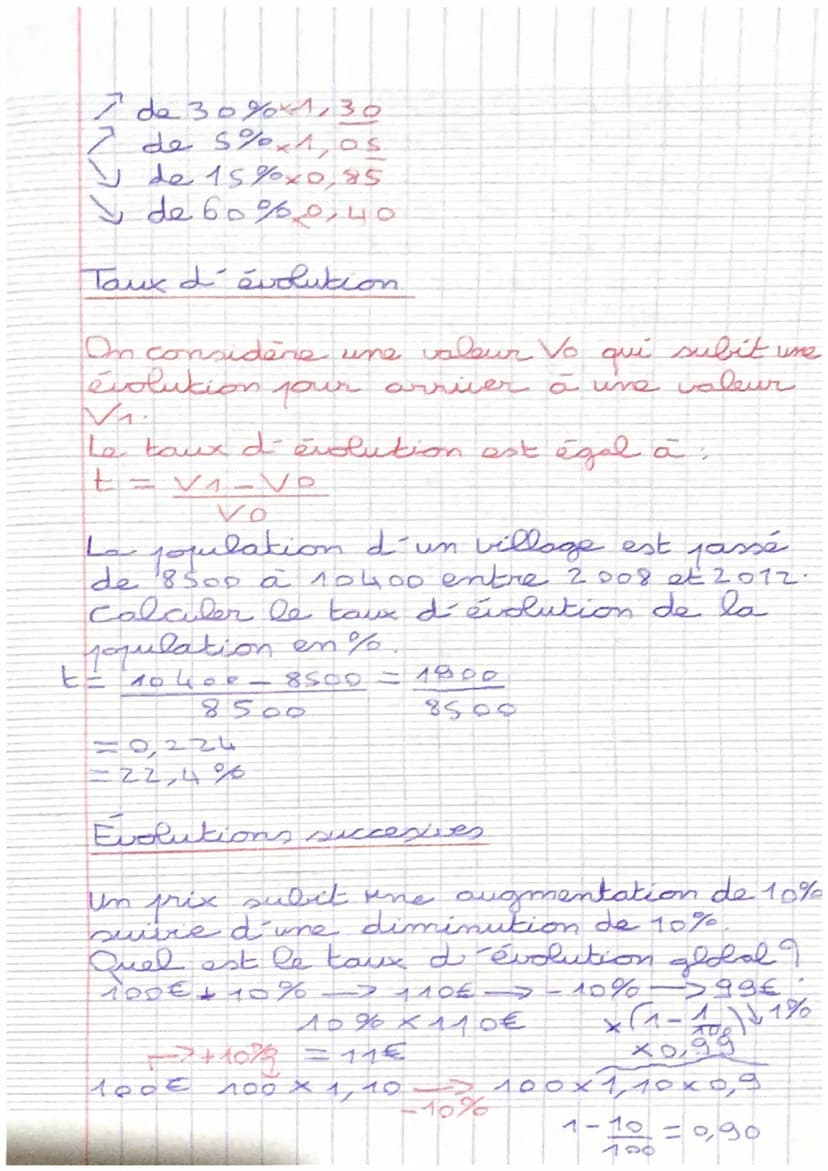 ↗ de 30%×1,30
↗ de 5%×1,05
↘ de 15%×0,85
↘ de 60%×0,40
Taux d'évolution
On considère une valeur V0 qui subit une
évolution pour arriver à une valeur
V1.
Le taux d'évolution est égal à :
t = V1-V0
V0
La population d'un village est passé
de 8500 à 10400 entre 2008 et 2012.
Calculer le taux d'évolution de la
population en %.
t = 10400 - 8500 = 1900
8500 8500
= 0,224
= 22,4 %
Evolutions succesives
Un prix subit une augmentation de 10%
suivie d'une diminution de 10%.
Quel est le taux d'évolution global ?
100€ + 10% → 110€ → -10% → 99€
10% × 110€ ×(1-1/100) ↓ 1%
→+10% = 11€ ×0,99
100€ 100 × 1,10 → 100×1,10×0,9
-10%
1 - 10 = 0,90
100